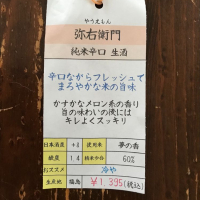 やうえもん
弥右衛門
純米辛口 生酒
辛口ながらフレッシュで
まろやかな米の旨味
かすかなメロン系の香り
旨の味わいの後には
キレよくスッキリ
日本酒度 +3 使用米 夢の香
酸度 1.4 精米歩合 60%
おススメ 冷や
生産地 福島 ¥1,395(税込)